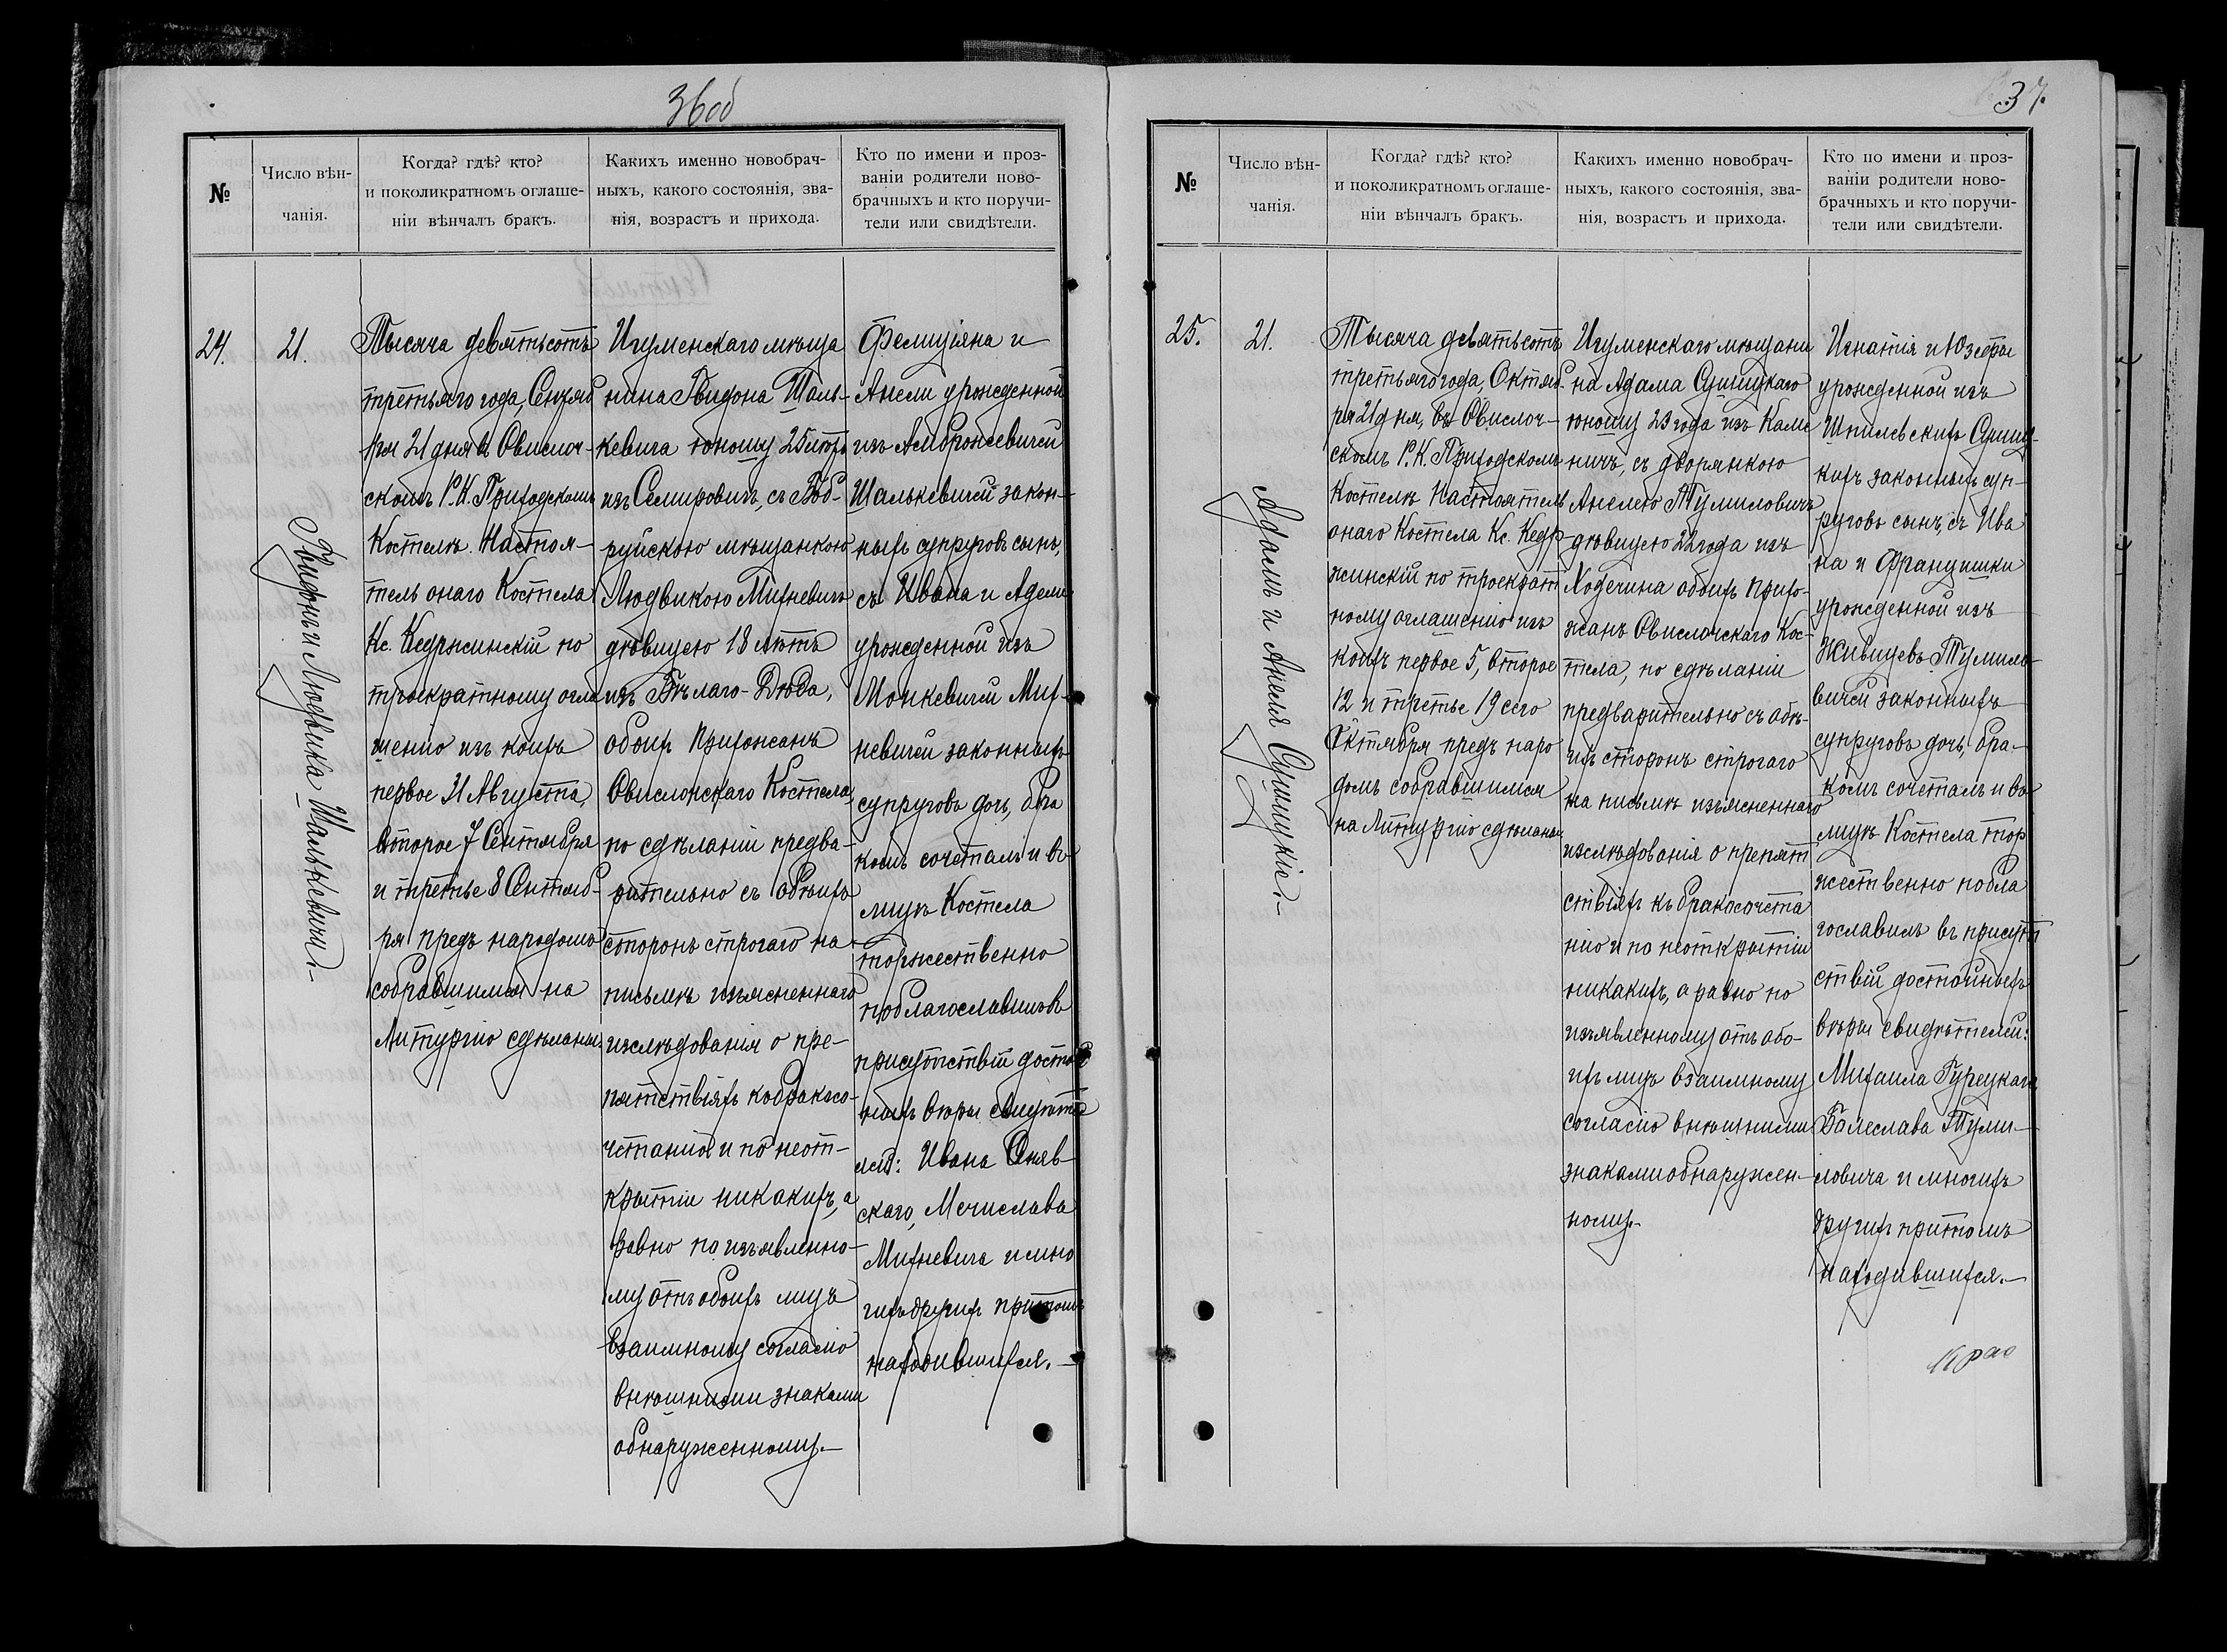 36об
№
Число вѣн-
чанія.
Когда? гдѣ? кто?
и поколикратномъ оглаше-
ніи вѣнчалъ бракъ.
Какихъ именно новобрач-
ныхъ, какого состоянія, зва-
нія, возрастъ и прихода.
Кто по имени и проз-
ваніи родители ново-
брачныхъ и кто поручи-
тели или свидѣтели.
24.
21.
Гвидонъ и Людвика Шалькевичи.
Тысяча девятьсотъ
третьяго года, Сентяб
ря 21 дня въ Овислоч-
скомъ Р. К. Приходскомъ
Костелѣ. Настоя-
тель онаго Костела
Кс. Кедржинскій по
троекратному огла
шенію изъ коихъ
первое 31 Августа,
второе 7 Сентября
и третье 8 Сентяб-
ря предъ народомъ
собравшимся на
Литургію сдѣланы
Игуменскаго мѣща
нина Гвидона Шаль-
кевича юношу 25 лѣтъ
изъ Семировичъ, съ Боб-
руйскою мѣщанкою
Людвикою Михневичъ
дѣвицею 18 лѣтъ
изъ Бѣлаго-Дюба,
обоихъ Прихожанъ
Овислочскаго Костела,
по сдѣланіи предва-
рительно съ обѣихъ
сторонъ строгаго на
письмѣ изъясненнаго
изслѣдованія о пре-
пятствіяхъ кобракосо-
четанію и по неот-
крытіи никакихъ, а
равно по изъявленно-
му отъ обоихъ лицъ
взаимному согласію
внѣшними знаками
обнаруженному.—
Фелиціяна и
Анели урожденной
изъ Амброжевичей
Шалькевичей закон-
ныхъ супруговъ сынъ,
съ Ивана и Адели
урожденной изъ
Монкевичей Мих-
невичей законныхъ
супруговъ дочь, бра
комъ сочеталъ и въ
лицѣ Костела
торжественно
поблагословилъ въ
присутствіи достой
ныхъ вѣры свидѣте
лей: Ивана
скаго, Мечислава
Михневича и мно
гихъ другихъ притомъ
находившихся.—
37.
№
Число вѣн-
чанія.
Когда? гдѣ? кто?
и поколикратномъ оглаше-
ніи вѣнчалъ бракъ.
Какихъ именно новобрач-
ныхъ, какого состоянія, зва-
нія, возрастъ и прихода.
Кто по имени и проз-
ваніи родители ново-
брачныхъ и кто поручи-
тели или свидѣтели.
25.
21.
Адамъ и Анеля Сушицкіе.—
Тысяча девятьсотъ
третьяго года, Октяб-
ря 21 дня, въ Овислоч-
скомъ Р. К. Приходскомъ
Костелѣ Настоятель
онаго Костела Кс. Кедр-
жинскій по троекрат
ному оглашенію изъ
коихъ первое 5, второе
12 и третье 19 сего
Октября предъ наро
домъ собравшимся
на Литургію сдѣланы
Игуменскаго мѣщани
на Адама Сушицкаго
юношу 23 года изъ Каме
ничъ, съ дворянкою
Анелею Тумиловичъ
дѣвицею 22 года изъ
Ходечина обоихъ прихо-
жанъ Овислочскаго Кос-
тела, по сдѣланіи
предварительно съ обѣ-
ихъ сторонъ строгаго
на письмѣ изъясненнаго
изслѣдованія о препят
ствіяхъ къ бракосочета
нію и по неоткрытіи
никакихъ, а равно по
изъявленному отъ обо-
ихъ лицъ взаимному
согласію внѣшними
знаками обнаружен-
ному.—
Игнатія и Юзефы
урожденной изъ
Шпилевскихъ Сушиц-
кихъ законныхъ суп-
руговъ сынъ, съ Ива
на и Францишки
урожденной изъ
Живицевъ Тумило-
вичей законныхъ
супруговъ дочь, бра-
комъ сочеталъ и въ
лицѣ Костела тор
жественно побла
гославилъ въ присут
ствіи достойныхъ
вѣры свидѣтелей:
Михаила Гурецкаго
Балеслава Туми-
ловича и многихъ
другихъ притомъ
находившихся.—